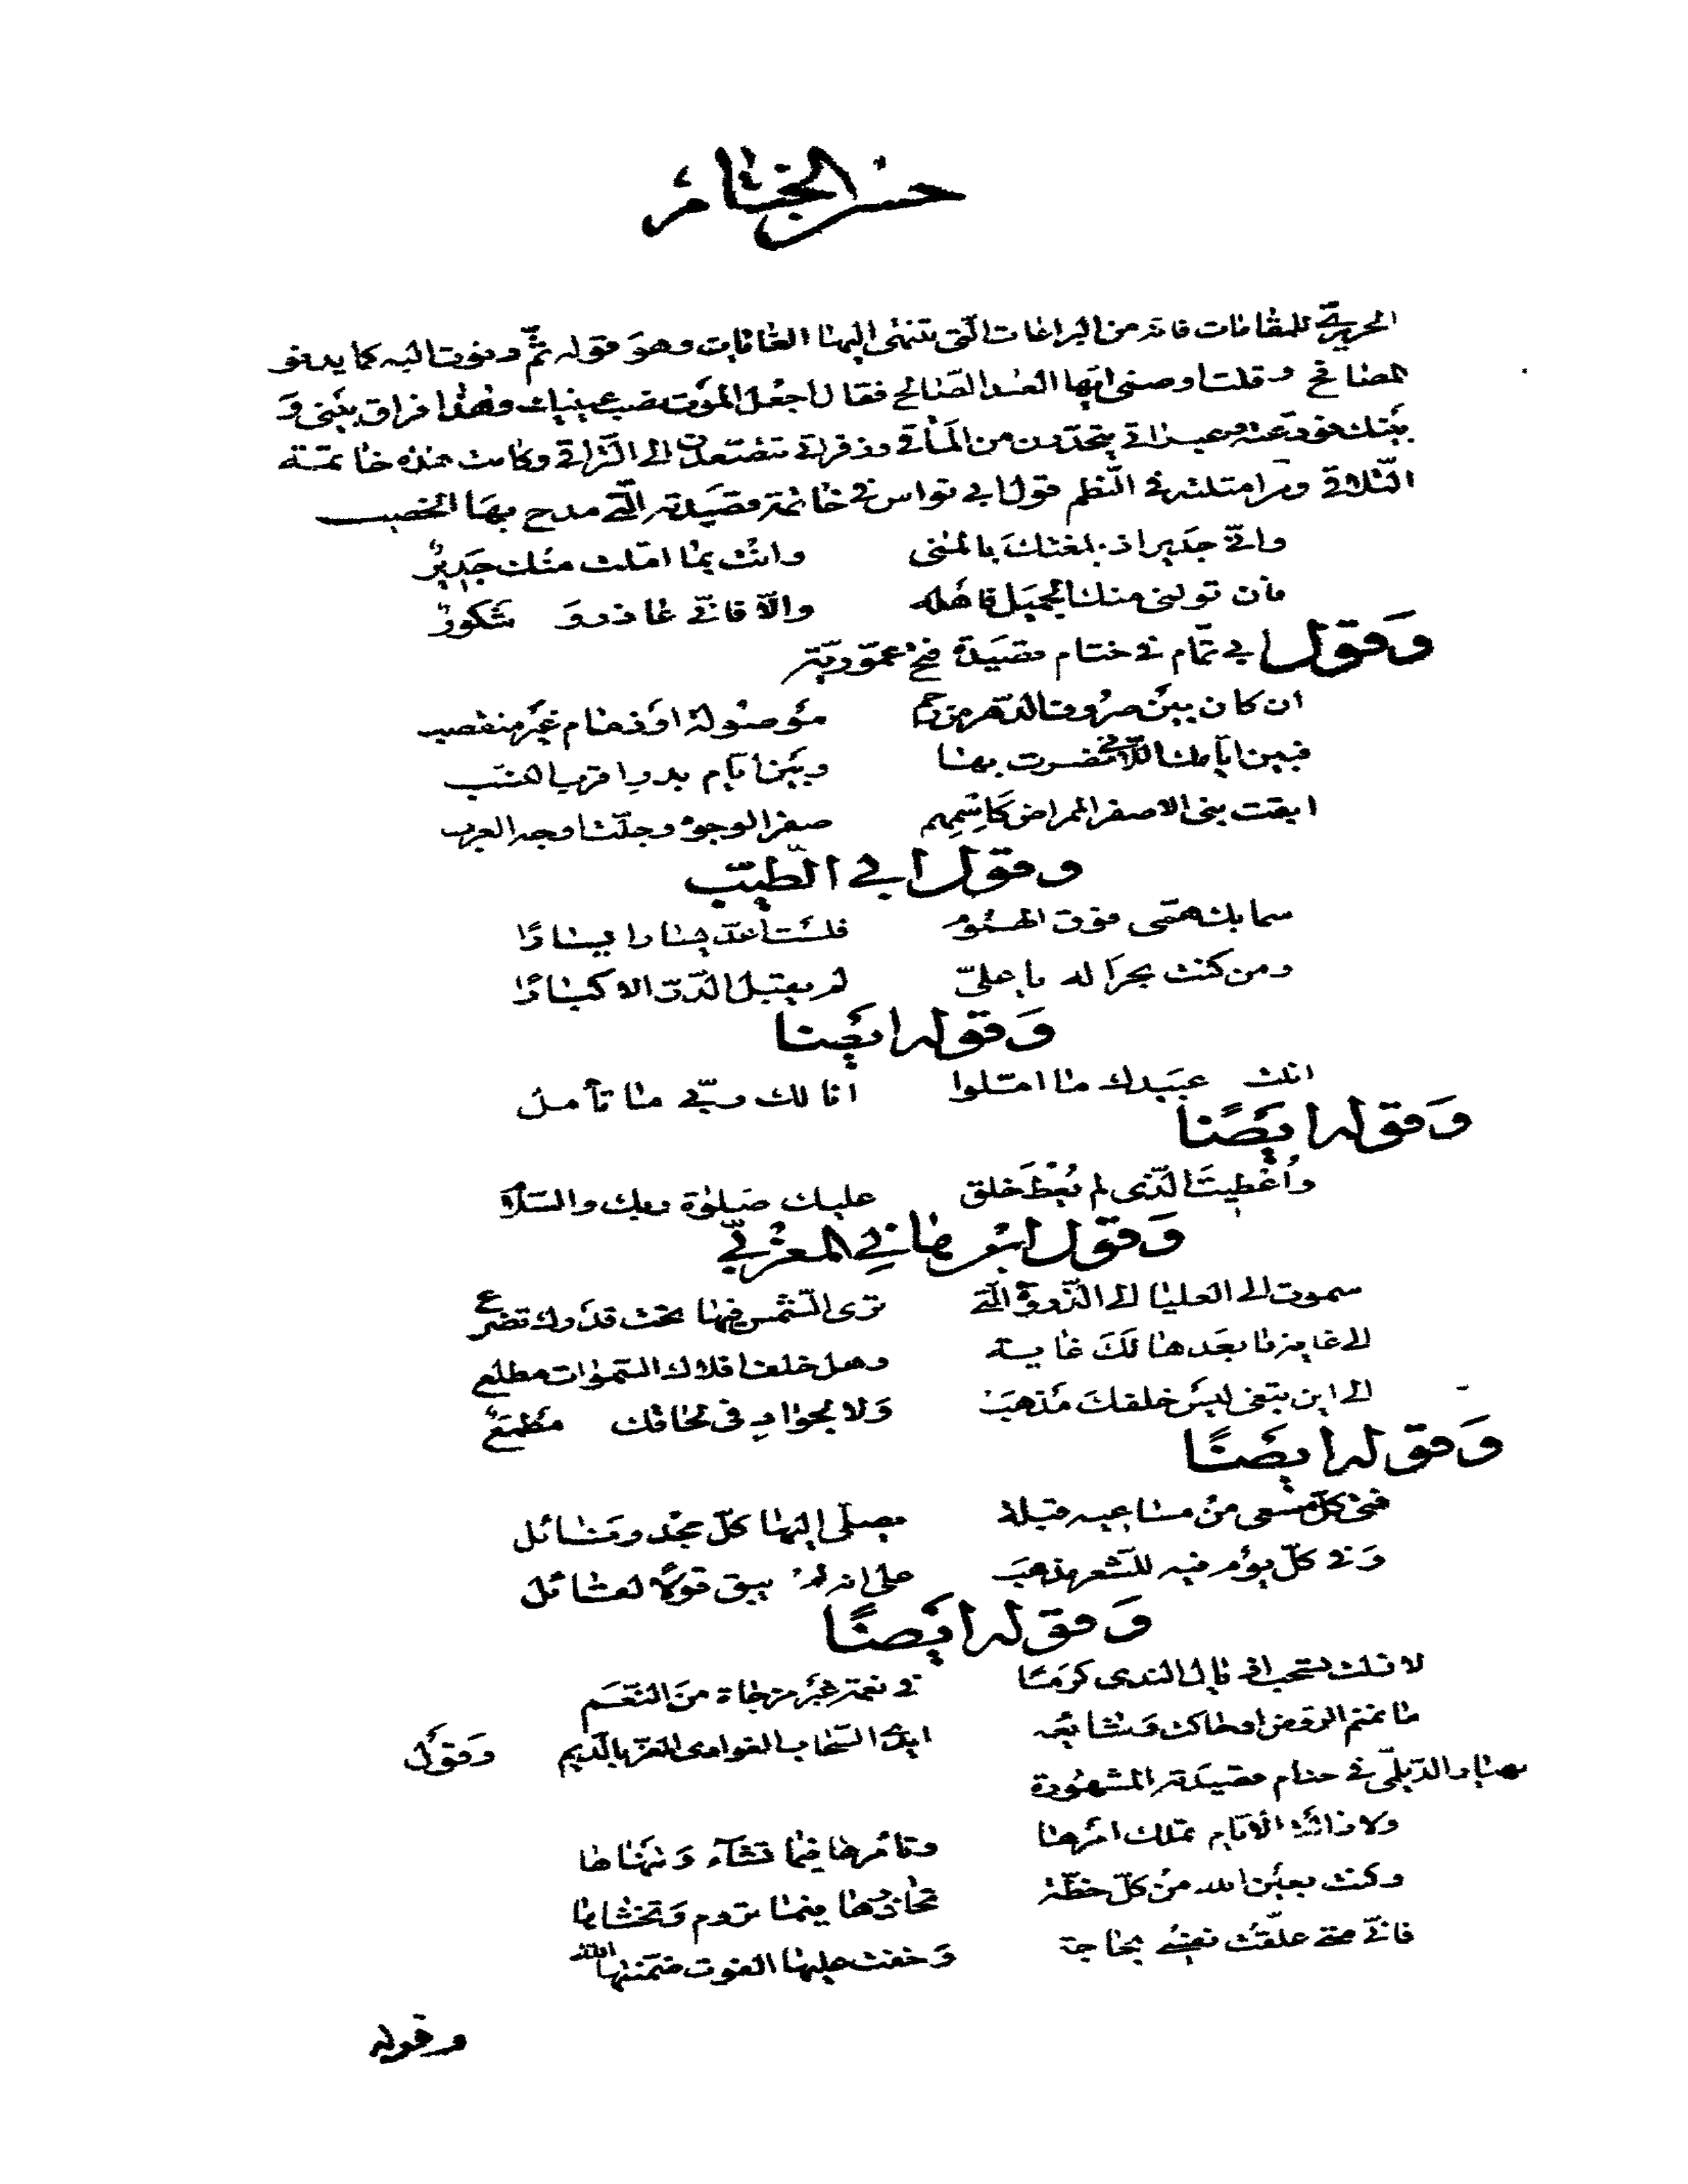 حسن الختام
الحريريّ للمقامات فانه من البراعات الّتى تنتهى اليها الغايات وهوَ قوله ثمّ دنوت اليه كما يدنو
المصافح وقلت اوصنى ايّها العبد الصّالح فقال اجعل الموت نصب عينيك وهٰذا فراق بينى وَ
بينك فودعته وعبراتى يتحدّرن من المأقى وزفراتى يتصّعدن الى التّراقى وكانت هذه خاتمة
التّلاقى ومن امثلته فى النّظم قول ابى نواس فى خاتمة قصَيدته الّتى مدح بهَا الخصيب
وانّى جدَير اذ بلغتك بالمنى وانت بما امّلت منك جَديرٌ
فان تولنى منك الجميَل فاهله والّا فانّى عاذر وَ شكورٌ
وَقول ابى تمّام فى ختام قصَيدة فتح عمّوريّة
ان كان بيْن صرُوف الدّهر من رحم موصُولة او ذمام غيْر منقضب
فبين ايّامك اللّاتى نصرت بها وبيَن ايّام بدر اقرب النسب
ابقت بنى الاصفر الممراض كَاسْمِهِم صفر الوجوه وجلّت اوجه العرب
وقول ابى الطّيّب
سما بك همّى فوق الهمُوم فلسْت اعدّ يسارا يسارًا
ومن كنت بحرَا له يا علىّ لم يقبل الدّرّ الا كبارًا
وَقوله ايضًا
انلت عبَيدك ما امّلوا انا لك ربّى ما تأمل
وَقوله ايضًا
وأعْطِيتَ الّذى لم يُعْطَ خلق عليك صَلوٰة ربك والسّلام
وَقول ابْن هانِى المغربىّ
سموت الى العليا الى الذّروة الّتى ترى الشّمس فيها تحت قدْرك تضرع
الى غاية ما بعَدها لَكَ غاية وهل خلف افلاك السّمٰوات مطلع
الى اين تبتغى ليْس خلفكَ مَذهبَ وَلا لجواد فى لحاقك مَطمَعُ
وَقوله ايضًا
ففى كلّ مسْعى منْ مساعيه قبلة يصلّى اليها كلّ مجْد ونائل
وَفى كلّ يوْم فيه للشّعر مذهبَ على انه لم يبق قولًا لقائل
وَقوله ايضًا
لا زلت تسحب اذيال الندى كرَمًا فى نعمة غيْر مزجاة منَ النّعَم
ما نمنم الرّوض او حاكت وَشايعه ايدى السّحاب الغوادى الغرّ بالدّيم وَقولُ
مهيار الديلمّى فى ختام قصَيدته المشهوُرة
ولا زالت الأيّام تملك امْرها وتأمُرها فيما تشآء وَنهَاها
وكنت بعيْن الله منْ كلّ خطّة تحاذرُها فيما تروم وَتخشاها
فانّى متى علّقت نفسْى بحاجة وَخفت عليها الفوت ضمّنتها الله
وقوله